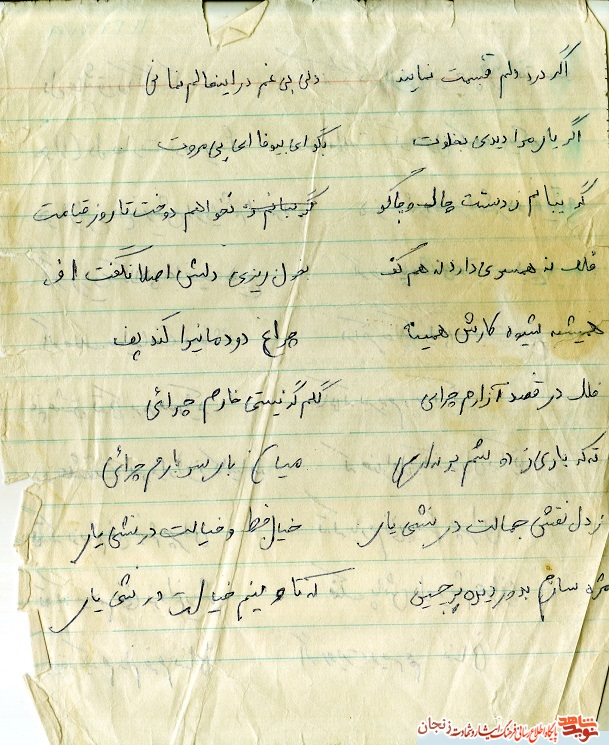 اگر درد دلم قسمت نمایند دلی بی غم در این عالم نمانی
اگر یار مرا دیدی بخلوت بگو ای بیوفا ای بی مروت
گریبانم ز دستت چاک و چاکو نخواهم دوخت تا روز قیامت
فلک نه همسری دارد نه هم کف بخون ریزی دلش اصلا نگفت اف
همیشه شیوه کارش همینه چراغ دودمانیرا کند پف
فلک در قصد آزارم چرائی گلم گر نیستی خارم چرائی
ته که باری ز دوشم بر نداری میان بار سر بارم چرائی
ز دل نقش جمالت در نشی یار خیال خط و خالت در نشی یار
مژه سازم بدور دیده پرچین که تا وینم خیالت در نشی یار
نوید شاهد
پایگاه اطلاع رسانی فرهنگ ایثار و شهادت زنجان